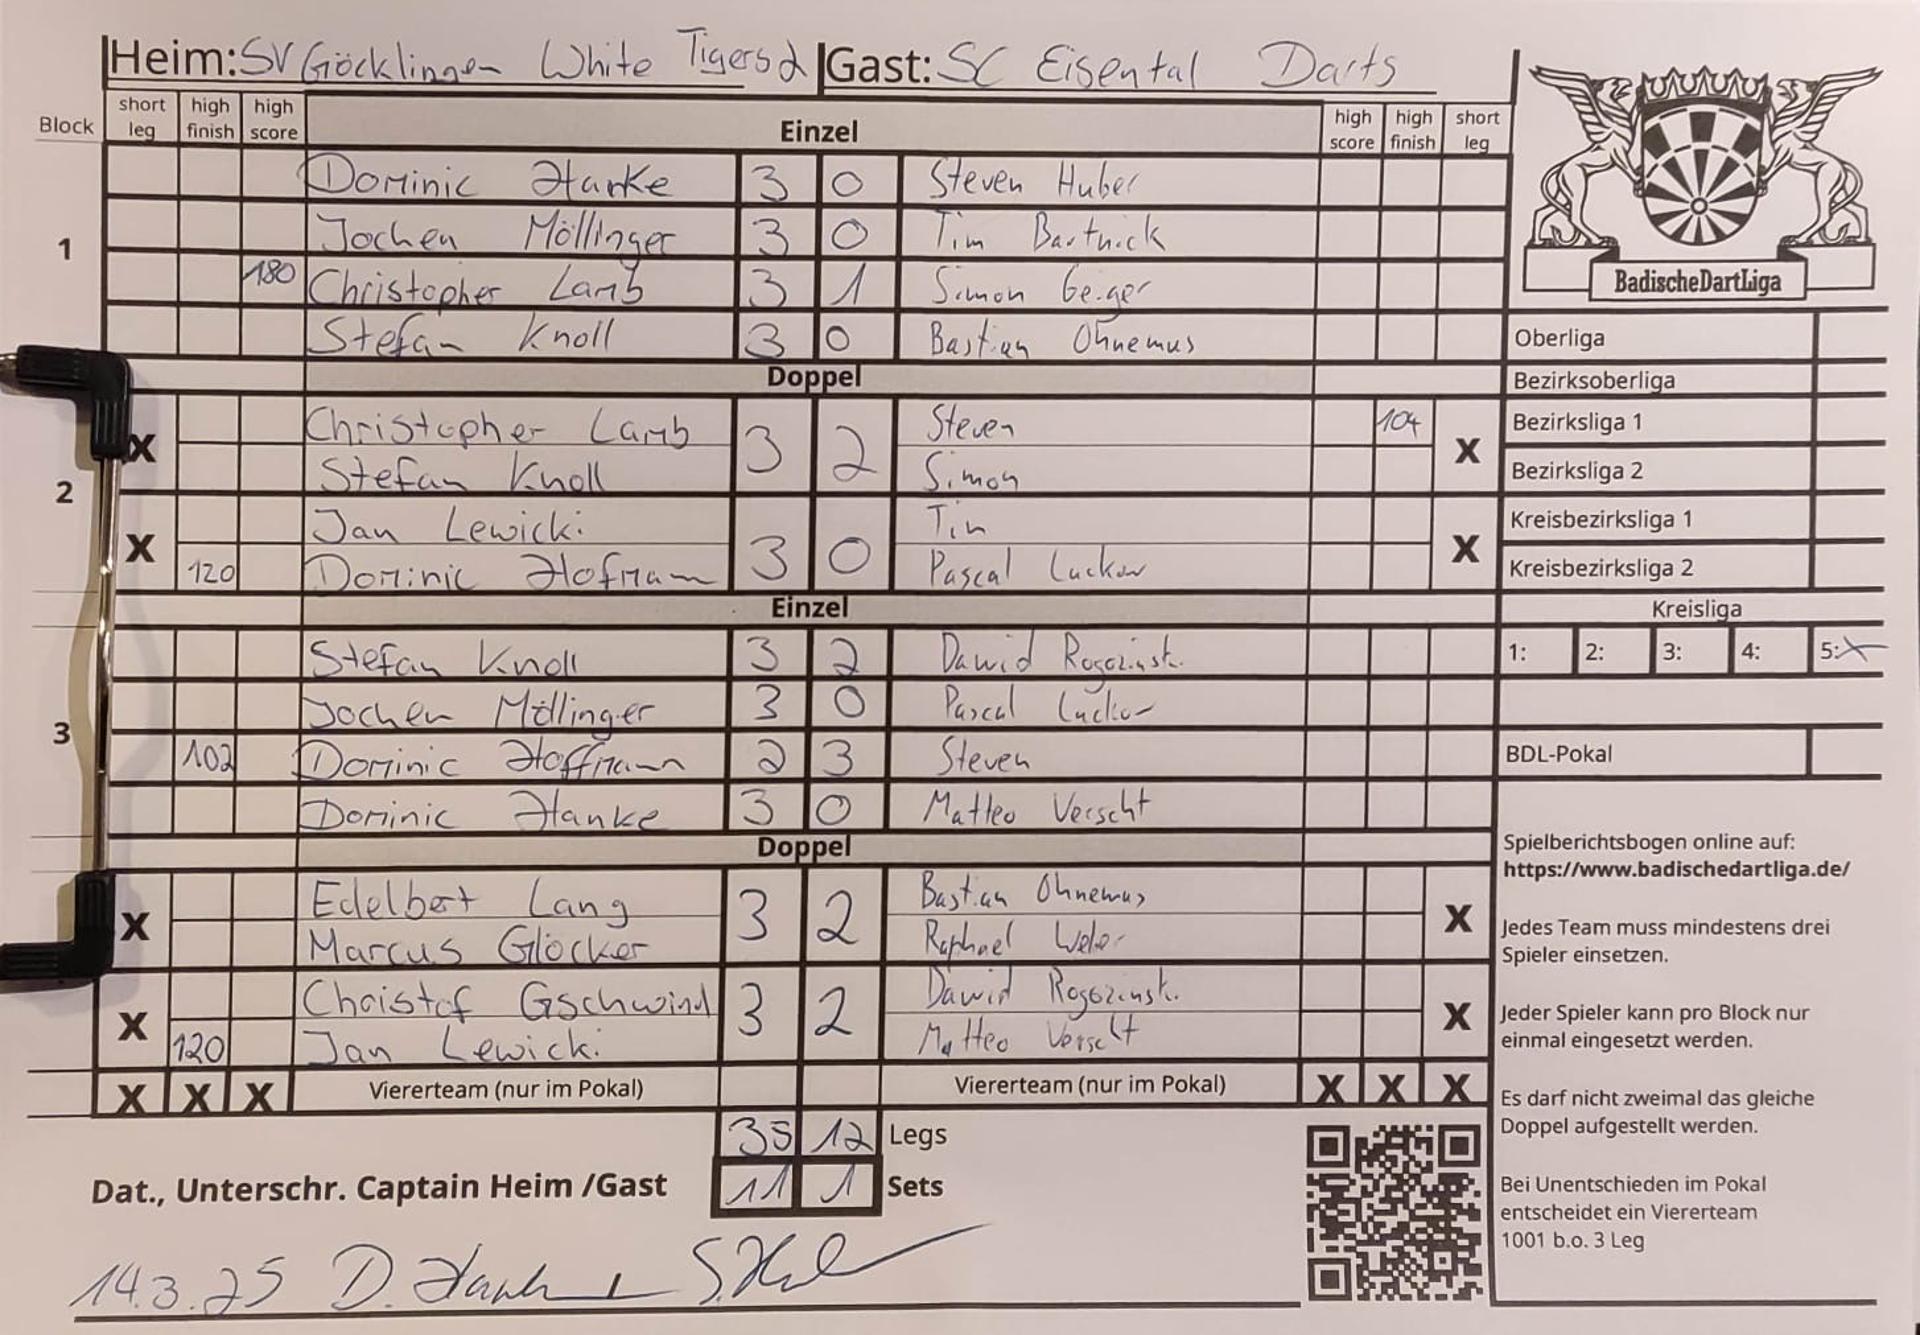 Heim: SV Göcklingen White Tigers 2 Gast: SC Eisental Darts
Block short leg high finish high score Einzel high score high finish short leg
Dominic Hanke 3 0 Steven Huber
1 Jochen Möllinger 3 0 Tim Bartnick
180 Christopher Lamb 3 1 Simon Geiger
Stefan Knoll 3 0 Bastian Ohnemus
Doppel
2
X Christopher Lamb 3 2 Steven 104 X
Stefan Knoll Simon
X Jan Lewicki 3 0 Tim X
120 Dominic Hofmann Pascal Luckow
Einzel
3
Stefan Knoll 3 2 Dawid Rogozinski
Jochen Möllinger 3 0 Pascal Luckow
102 Dominic Hoffmann 2 3 Steven
Dominic Hanke 3 0 Matteo Verscht
Doppel
X Edelbert Lang 3 2 Bastian Ohnemus X
Marcus Glöcker Raphael Weber
X Christof Gschwind 3 2 Dawid Rogozinski X
120 Jan Lewicki Matteo Verscht
X X X Viererteam (nur im Pokal) Viererteam (nur im Pokal) X X X
35 12 Legs
Dat., Unterschr. Captain Heim /Gast 11 1 Sets
14.3.25 D. Hanke
BadischeDartLiga
Oberliga
Bezirksoberliga
Bezirksliga 1
Bezirksliga 2
Kreisbezirksliga 1
Kreisbezirksliga 2
Kreisliga
1: 2: 3: 4: 5: X
BDL-Pokal
Spielberichtsbogen online auf:
https://www.badischedartliga.de/
Jedes Team muss mindestens drei
Spieler einsetzen.
Jeder Spieler kann pro Block nur
einmal eingesetzt werden.
Es darf nicht zweimal das gleiche
Doppel aufgestellt werden.
Bei Unentschieden im Pokal
entscheidet ein Viererteam
1001 b.o. 3 Leg